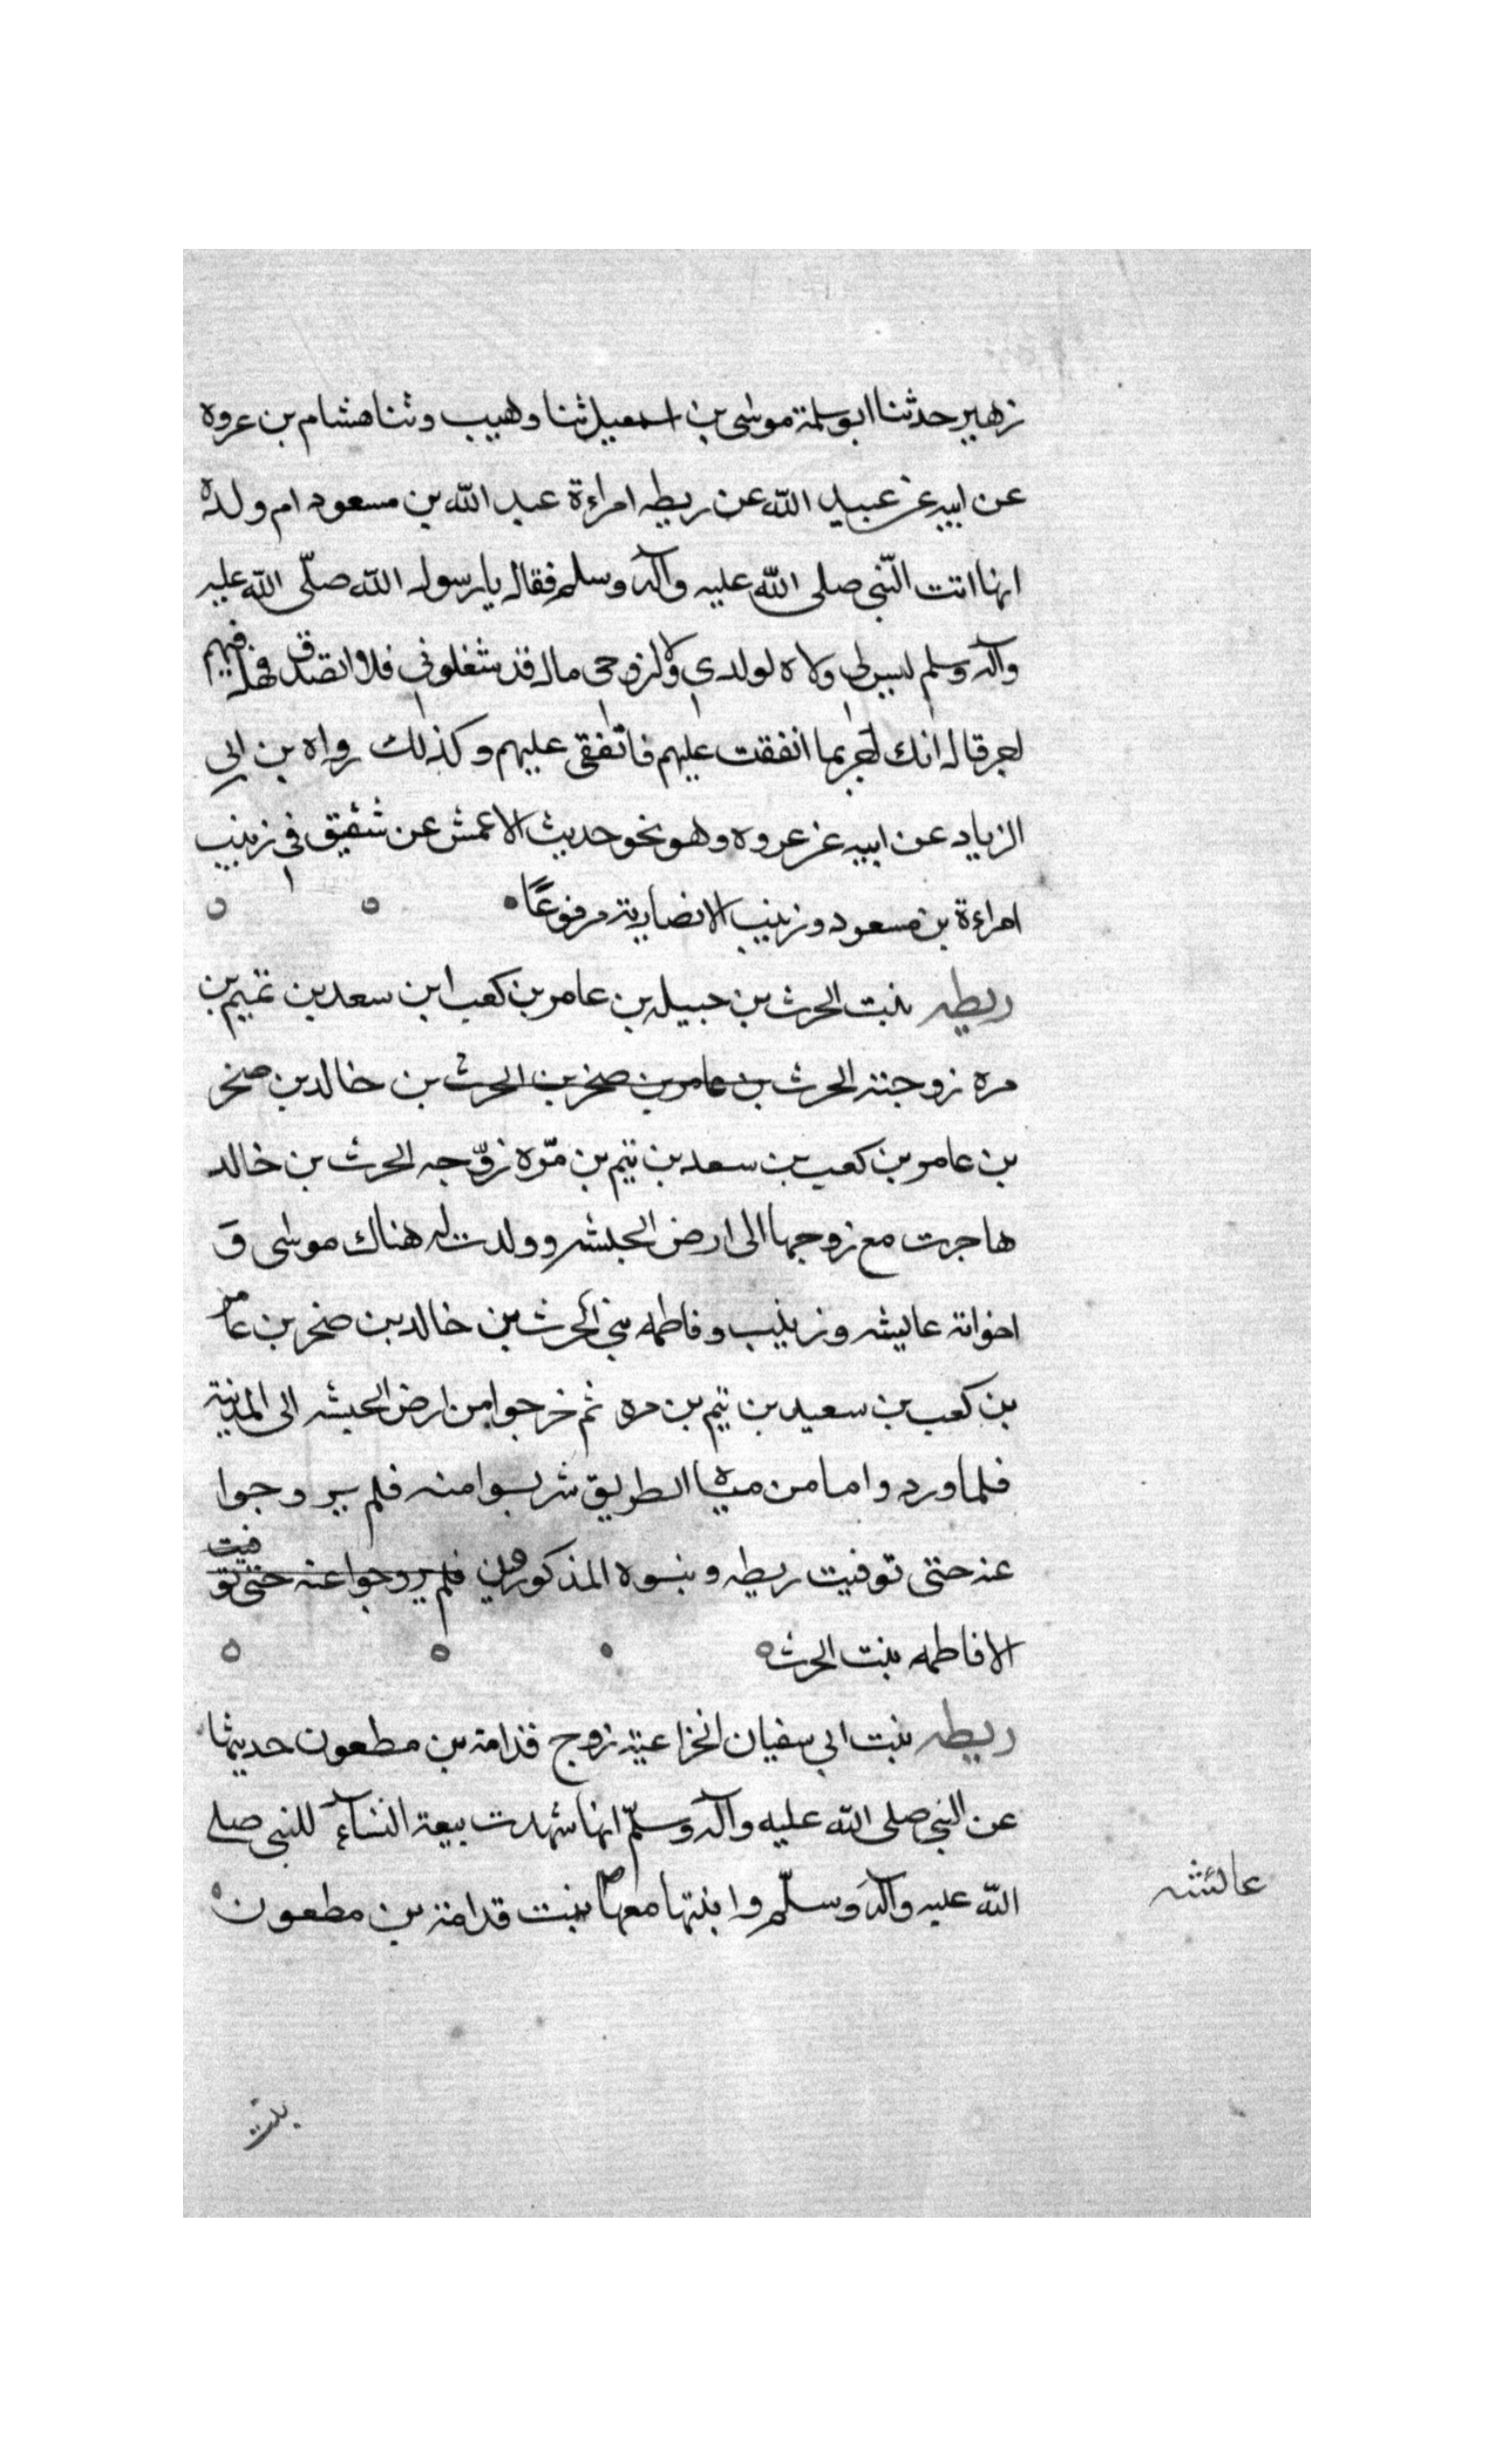 زهير حدثنا ابو سلمة موسى بن اسمعيل ثنا وهيب وثنا هشام بن عروه
عن ابيه عن عبيد الله عن ريطه امراءة عبد الله بن مسعود ام ولده
انها اتت النّبي صلى الله عليه وآله وسلم فقال يا رسول الله صلّى الله عليه
وآله وسلم ليس لي ولا لولدي ولا لزوجى مال قد شغلوني فلا اتصدق فهل فيهم
اجر قال انك لجر بما انفقت عليهم فانفقى عليهم وكذلك رواه بن ابي
الزياد عن ابيه عن عروه وهو نحو حديث الاعمش عن شقيق في زينب
امراءة بن مسعود وزينب الانصارية مرفوعًا
ريطه بنت الحرث بن جبيله بن عامر بن كعب ابن سعد بن تميم بن
مره زوجته الحرث بن عامر بن صخر بن الحرث بن خالد بن صخر
بن عامر بن كعب بن سعد بن تيم بن مرّه زوّجه الحرث بن خالد
هاجرت مع زوجها الى ارض الحبشه وولدت له هناك موسى وَ
اخواته عايشه وزينب وفاطمه بني الحرث بن خالد بن صخر بن عامر
بن كعب بن سعيد بن تيم بن مره ثم خرجوا من ارض الحبشه الى المدينة
فلما وردوا ما من مياه الطريق شربوا منه فلم يروجوا
عنه حتى توفيت ريطه وبنوه المذكورون فلم يروجوا عنه حتى توفيت
الا فاطمه بنت الحرث
ريطه بنت ابي سفيان الخزاعية زوج قدامة بن مظعون حديثها
عن النبي صلى الله عليه وآله وسلّم انها شهدت بيعة النسآء للنبي صلى
الله عليه وآله وسلّم وابنتها معها بنت قدامة بن مطعون
عائشه
بنت